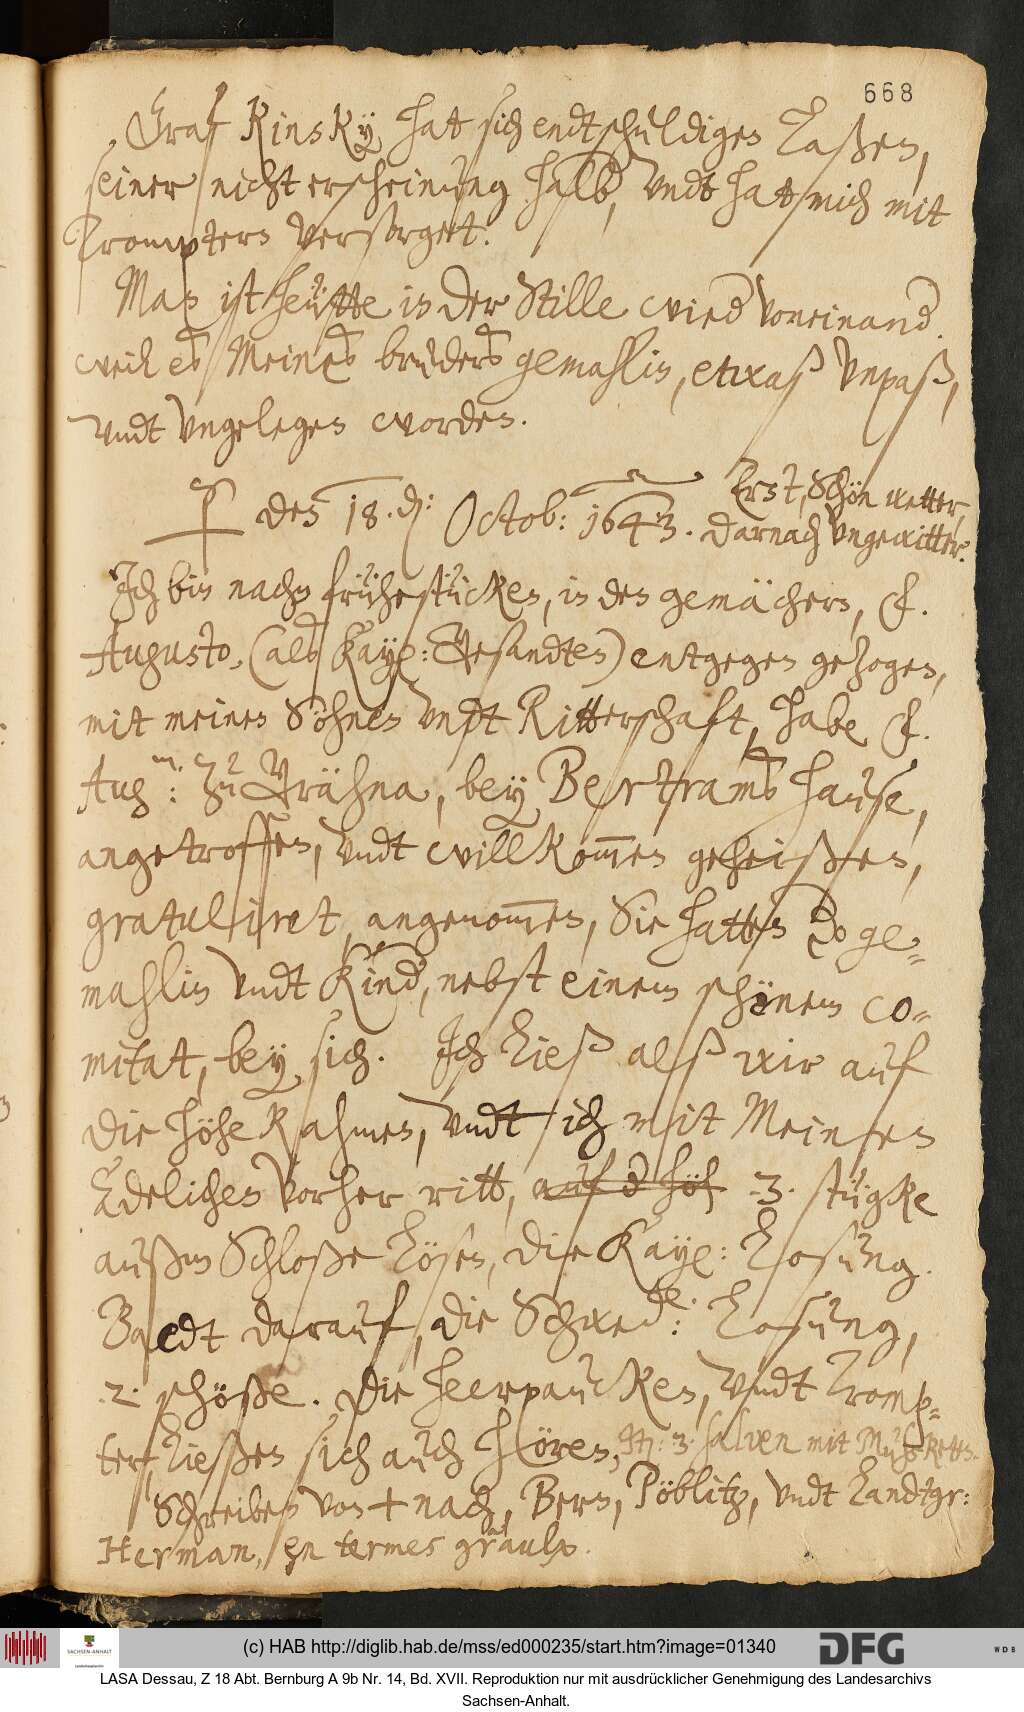 668
Graf Kinsky hat sich endtschuldigen laßen,
seiner nicht erscheinung halb, vndt hat mich mit
Trompters versorget.
Man ist heütte in der Stille wied voneinand.
weil es Meines bruders gemahlin, etwaß vnpaß,
vndt vngelegen worden.
den 18. d: Octob: 1643.
Erst, Schön wetter,
darnach vngewitter.
Ich bin nachm frühestücken, in den gemächern, F.
Augusto, (als Kayl: Gesandten) entgegen gezogen,
mit meinen Söhnen vndt Ritterschaft, habe F.
Augm: zu Grähna, bey Bertrams hause,
angetroffen, vndt willkommen geheißen,
gratuliret, angenommen, Sie hatten Do ge-
mahlin vndt Kind, nebst einem schönem co-
mitat, bey sich. Ich ließ alß wir auf
die höhe kahmen, vndt ich mit Meinen
Edelichen vorher ritt, auf d höh 3. stügke
außm Schloße lösen, die Kayl: Losung.
Baldt darauf, die Schwede: Losung,
2. schöße. Die heerpaucken, vndt Tromp-
ter, ließen sich auch hören, It: 3. salven mit Mußketen.
Schreiben von + nach, Bern, Pöblitz, vndt Landtgr:
Herman, en termes
(c) HAB http://diglib.hab.de/mss/ed000235/start.htm?image=01340
DFG
WDB
SACHSEN-ANHALT
LASA Dessau, Z 18 Abt. Bernburg A 9b Nr. 14, Bd. XVII. Reproduktion nur mit ausdrücklicher Genehmigung des Landesarchivs
Sachsen-Anhalt.